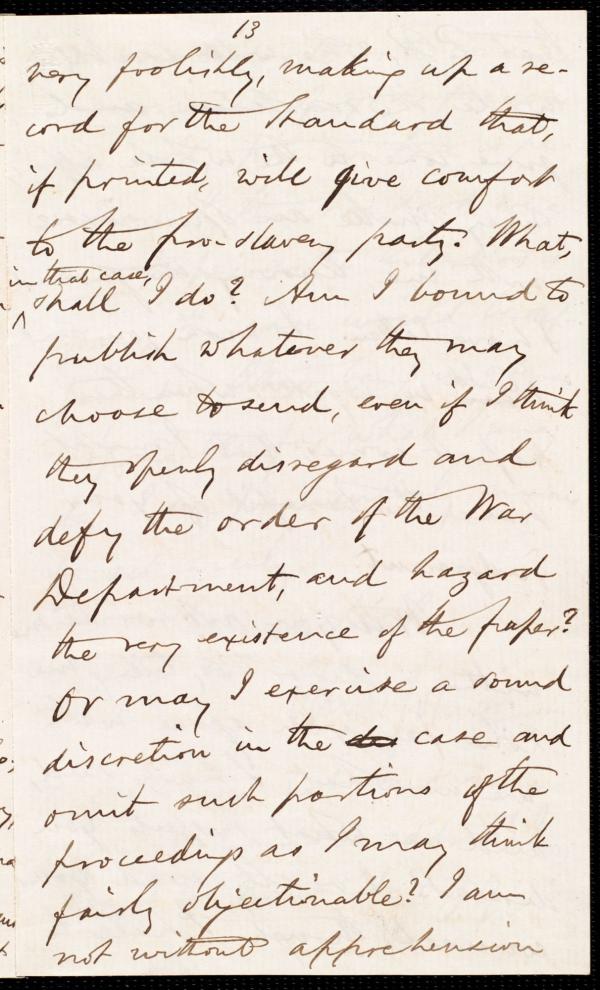 13
very foolishly, making up a re-
cord for the Standard that,
if printed, will give comfort
to the pro-slavery party. What,
in that case,
^ shall I do? Am I bound to
publish whatever they may
choose to send, even if I think
they openly disregard and
defy the order of the War
Department, and hazard
the very existence of the paper?
Or may I exercise a sound
discretion in the case and
omit such portions of the
proceedings as I may think
fairly objectionable? I am
not without apprehension